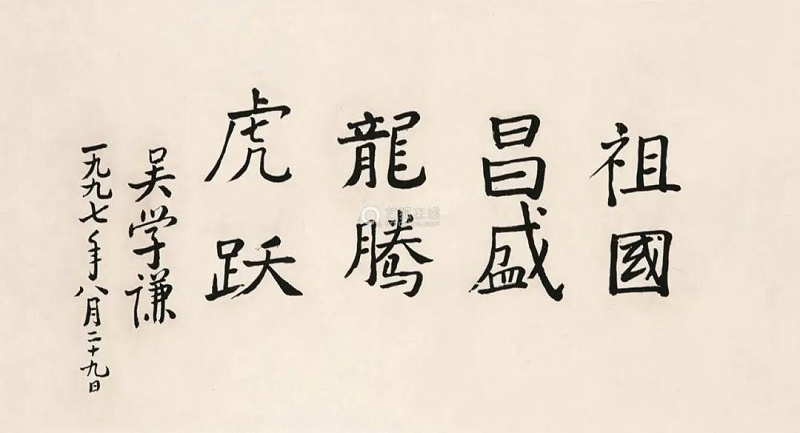 祖國
昌盛
龍腾
虎跃
吴学谦
一九九七年八月二十九日